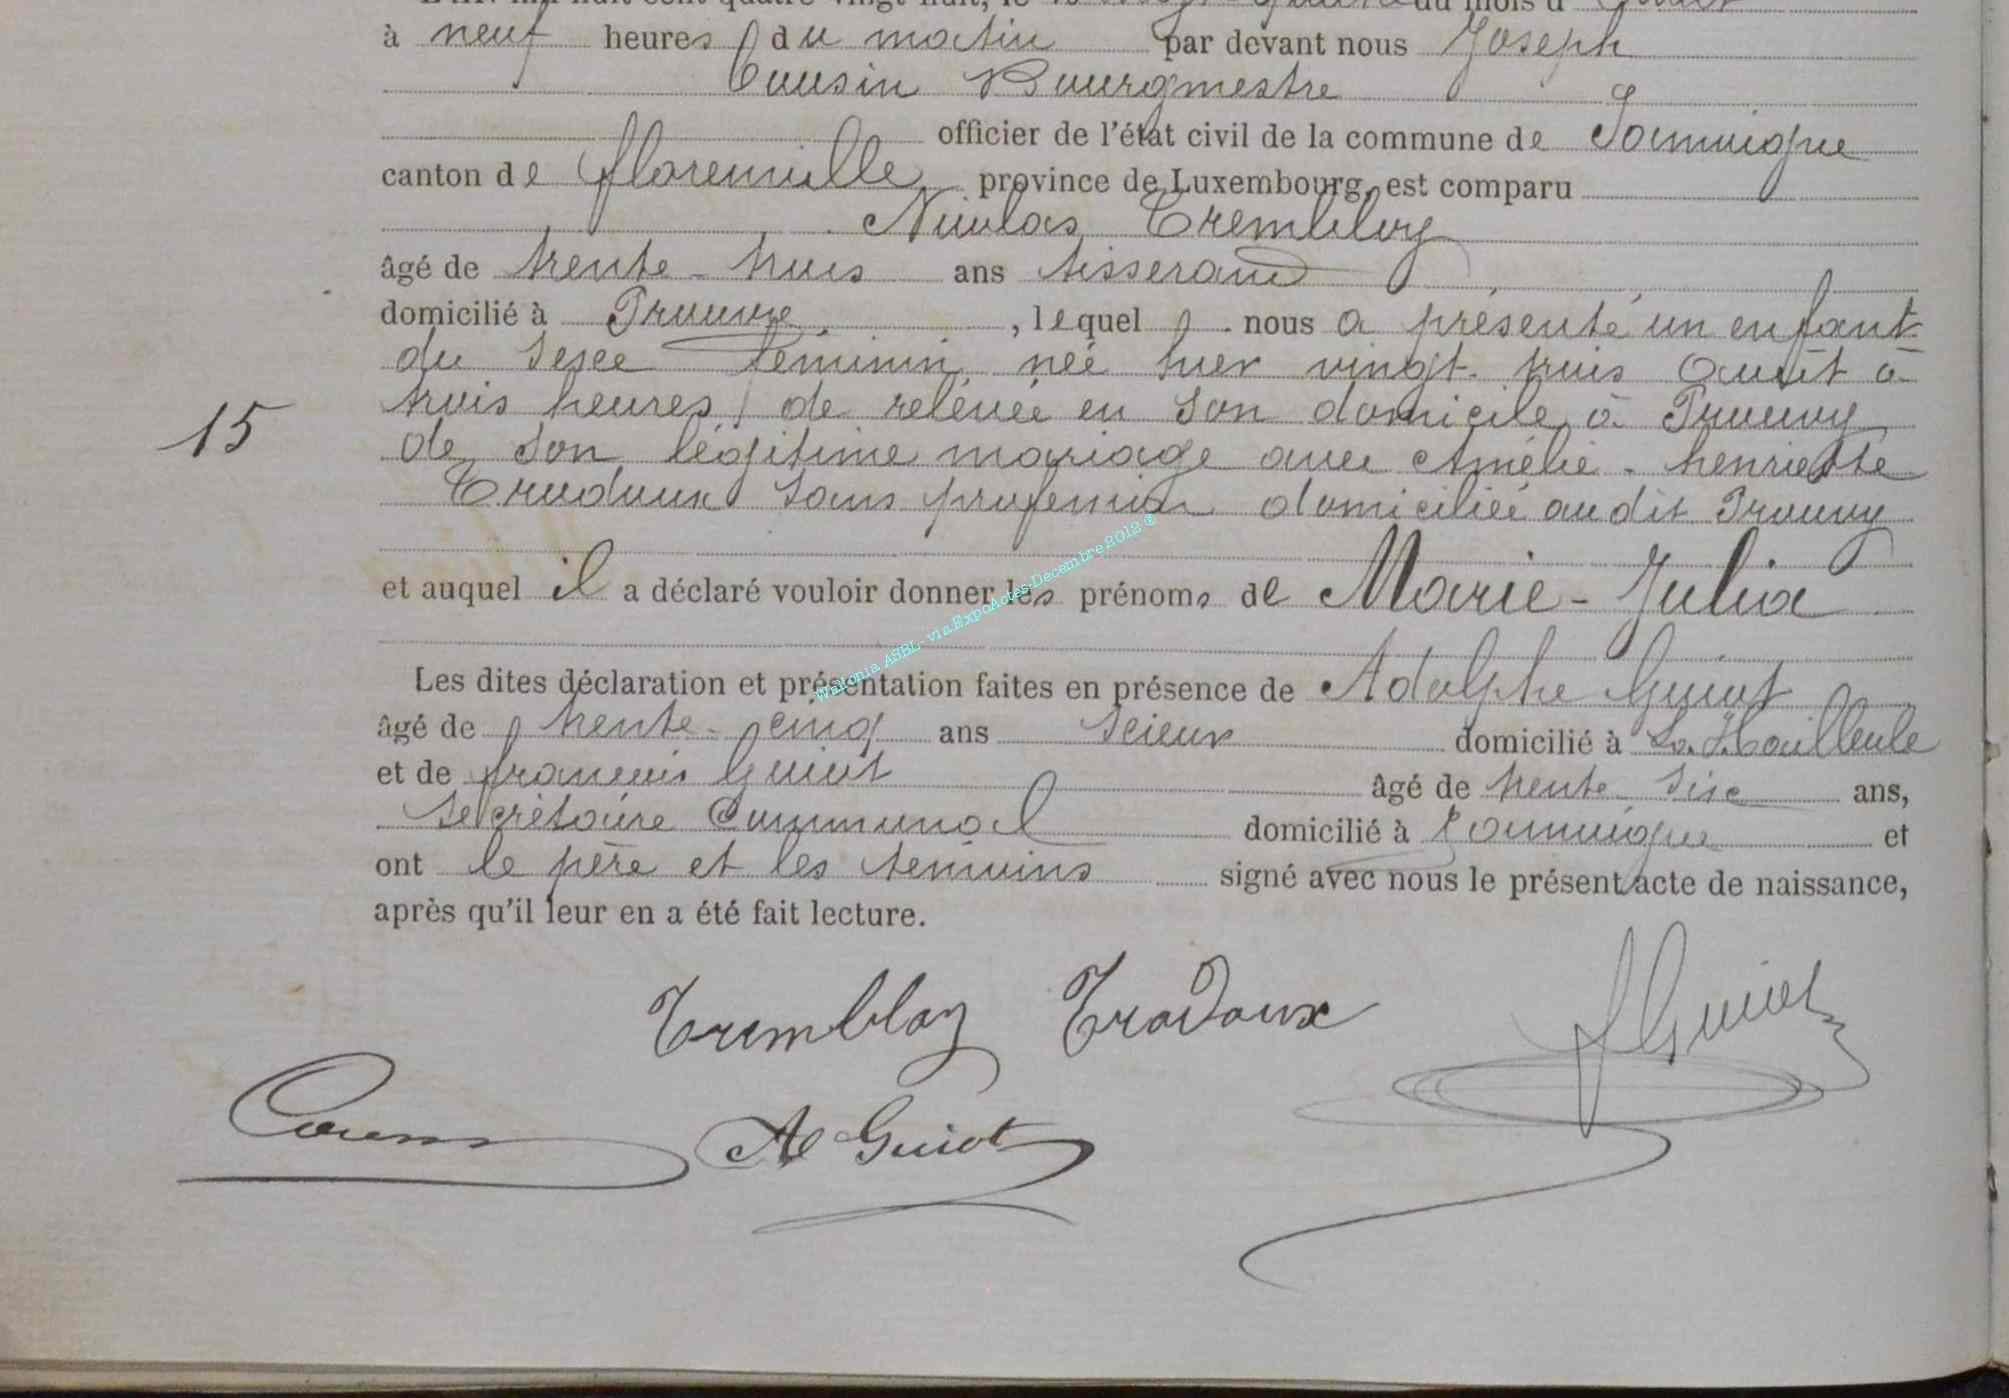 L'An mil huit cent quatre vingt huit, le vingt-quatre du mois d'Août
à neuf heures du matin par devant nous Joseph
Cousin Bourgmestre
officier de l'état civil de la commune de
canton de florenville province de Luxembourg, est comparu
Nicolas Trembloy
âgé de trente-trois ans tisserand
domicilié à Prouvy, lequel nous a présenté un enfant
du sexe féminin née hier vingt-trois Août à
trois heures de relevée en son domicile à Prouvy
de son légitime mariage avec Amélie-henriette
Trodoux sans profession domiciliée audit Prouvy
15
et auquel il a déclaré vouloir donner les prénoms de Marie-Julia
Les dites déclaration et présentation faites en présence de Adolphe Guiot
âgé de trente-cinq ans scieur domicilié à
et de françois Guiot âgé de trente six ans,
secrétaire Communal domicilié à et
ont le père et les témoins signé avec nous le présent acte de naissance,
après qu'il leur en a été fait lecture.
Trembloy Trodoux
Guiot
Cousin A Guiot
Wallonia ASBL - via ExpoActes-Decembre 2012 ®